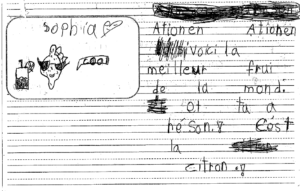 sophia
cool
Ationen Ationen
ivoici la
meilleur frui
de la mond.
ot tu a
héson.8 cóst
la
citron.8